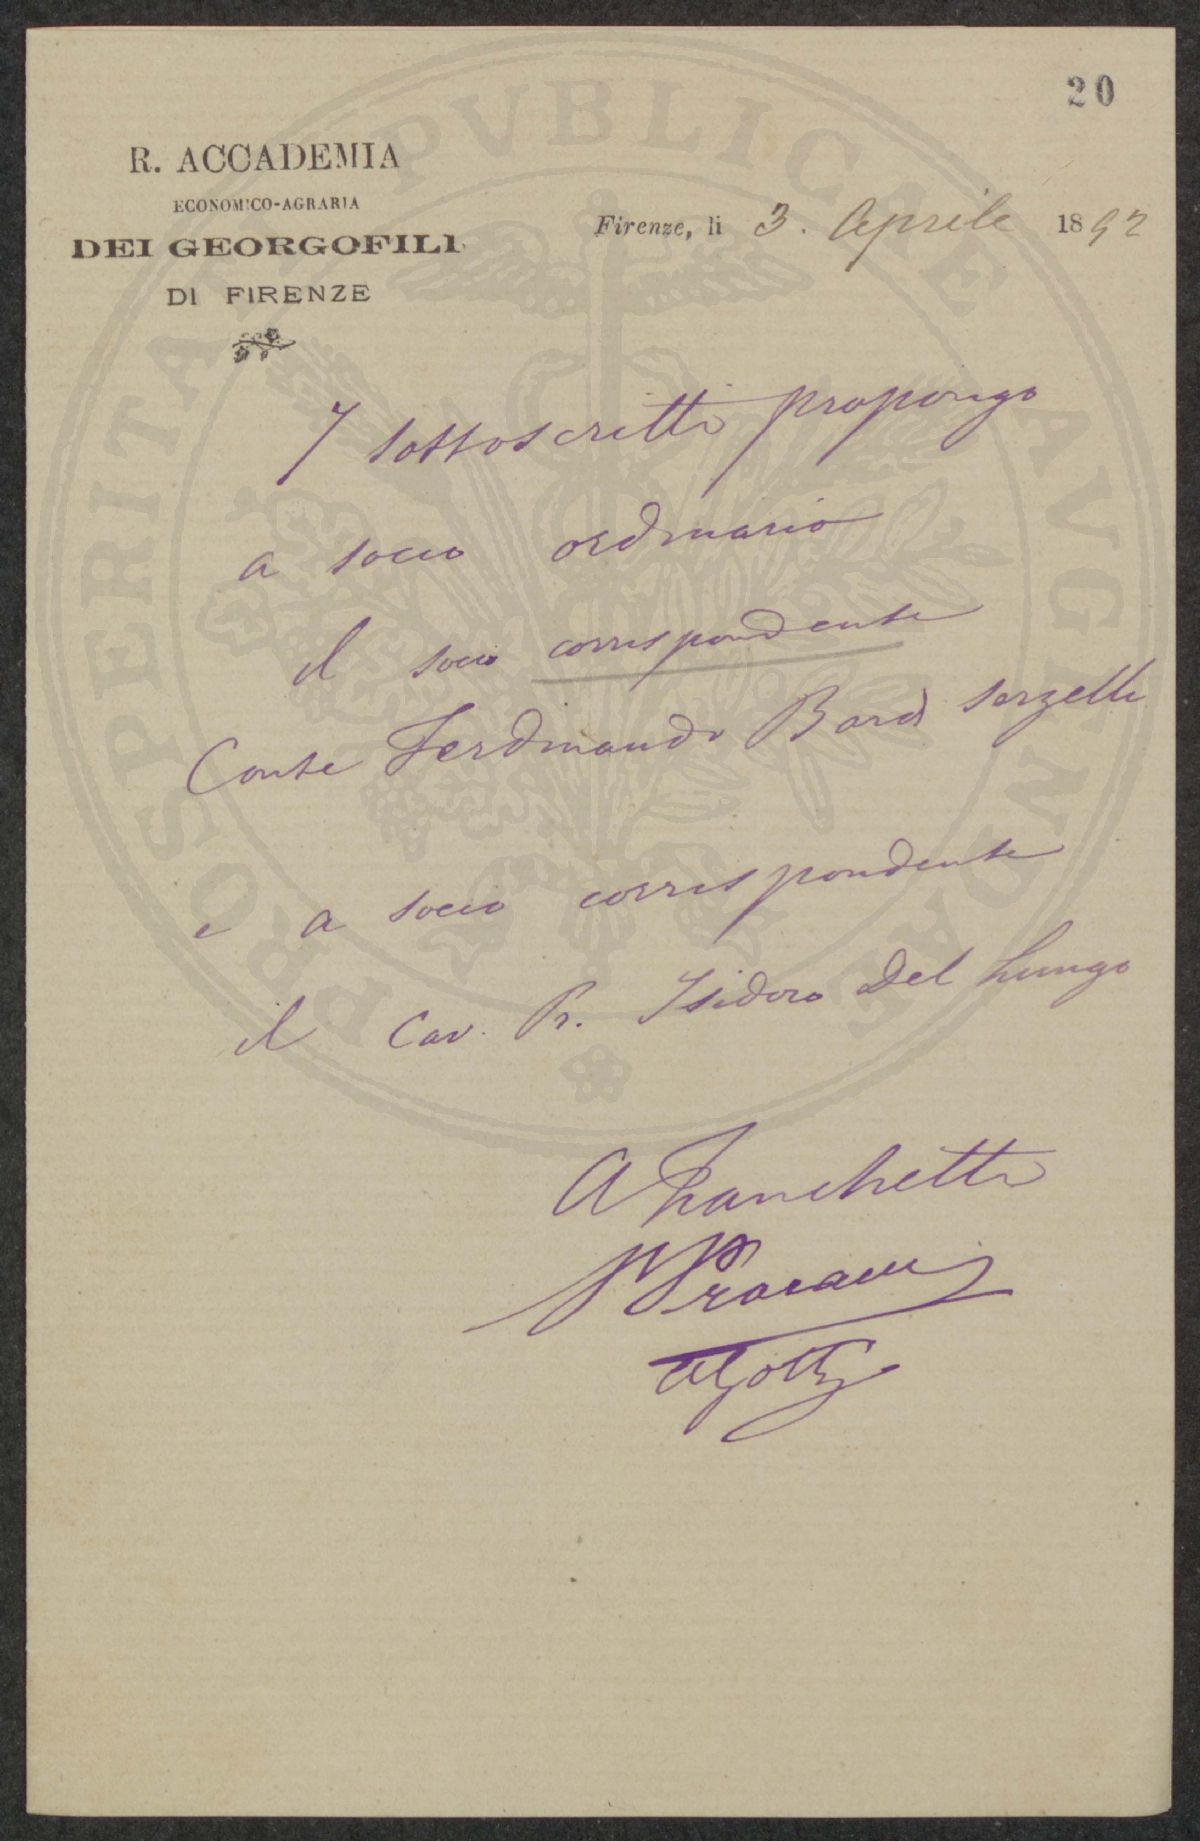 20
R. ACCADEMIA
ECONOMICO-AGRARIA
DEI GEORGOFILI
DI FIRENZE
Firenze, li 3. Aprile 1892
I sottoscritti propongo
a socio ordinario
il socio corrispondente
Conte Ferdinando Bardi Serzelli
e a socio corrispondente
il Cav. Pr. Isidoro Del Lungo
A Franchetti
Gotti
PROSPERITATI PVBLICAE AVGENDAE